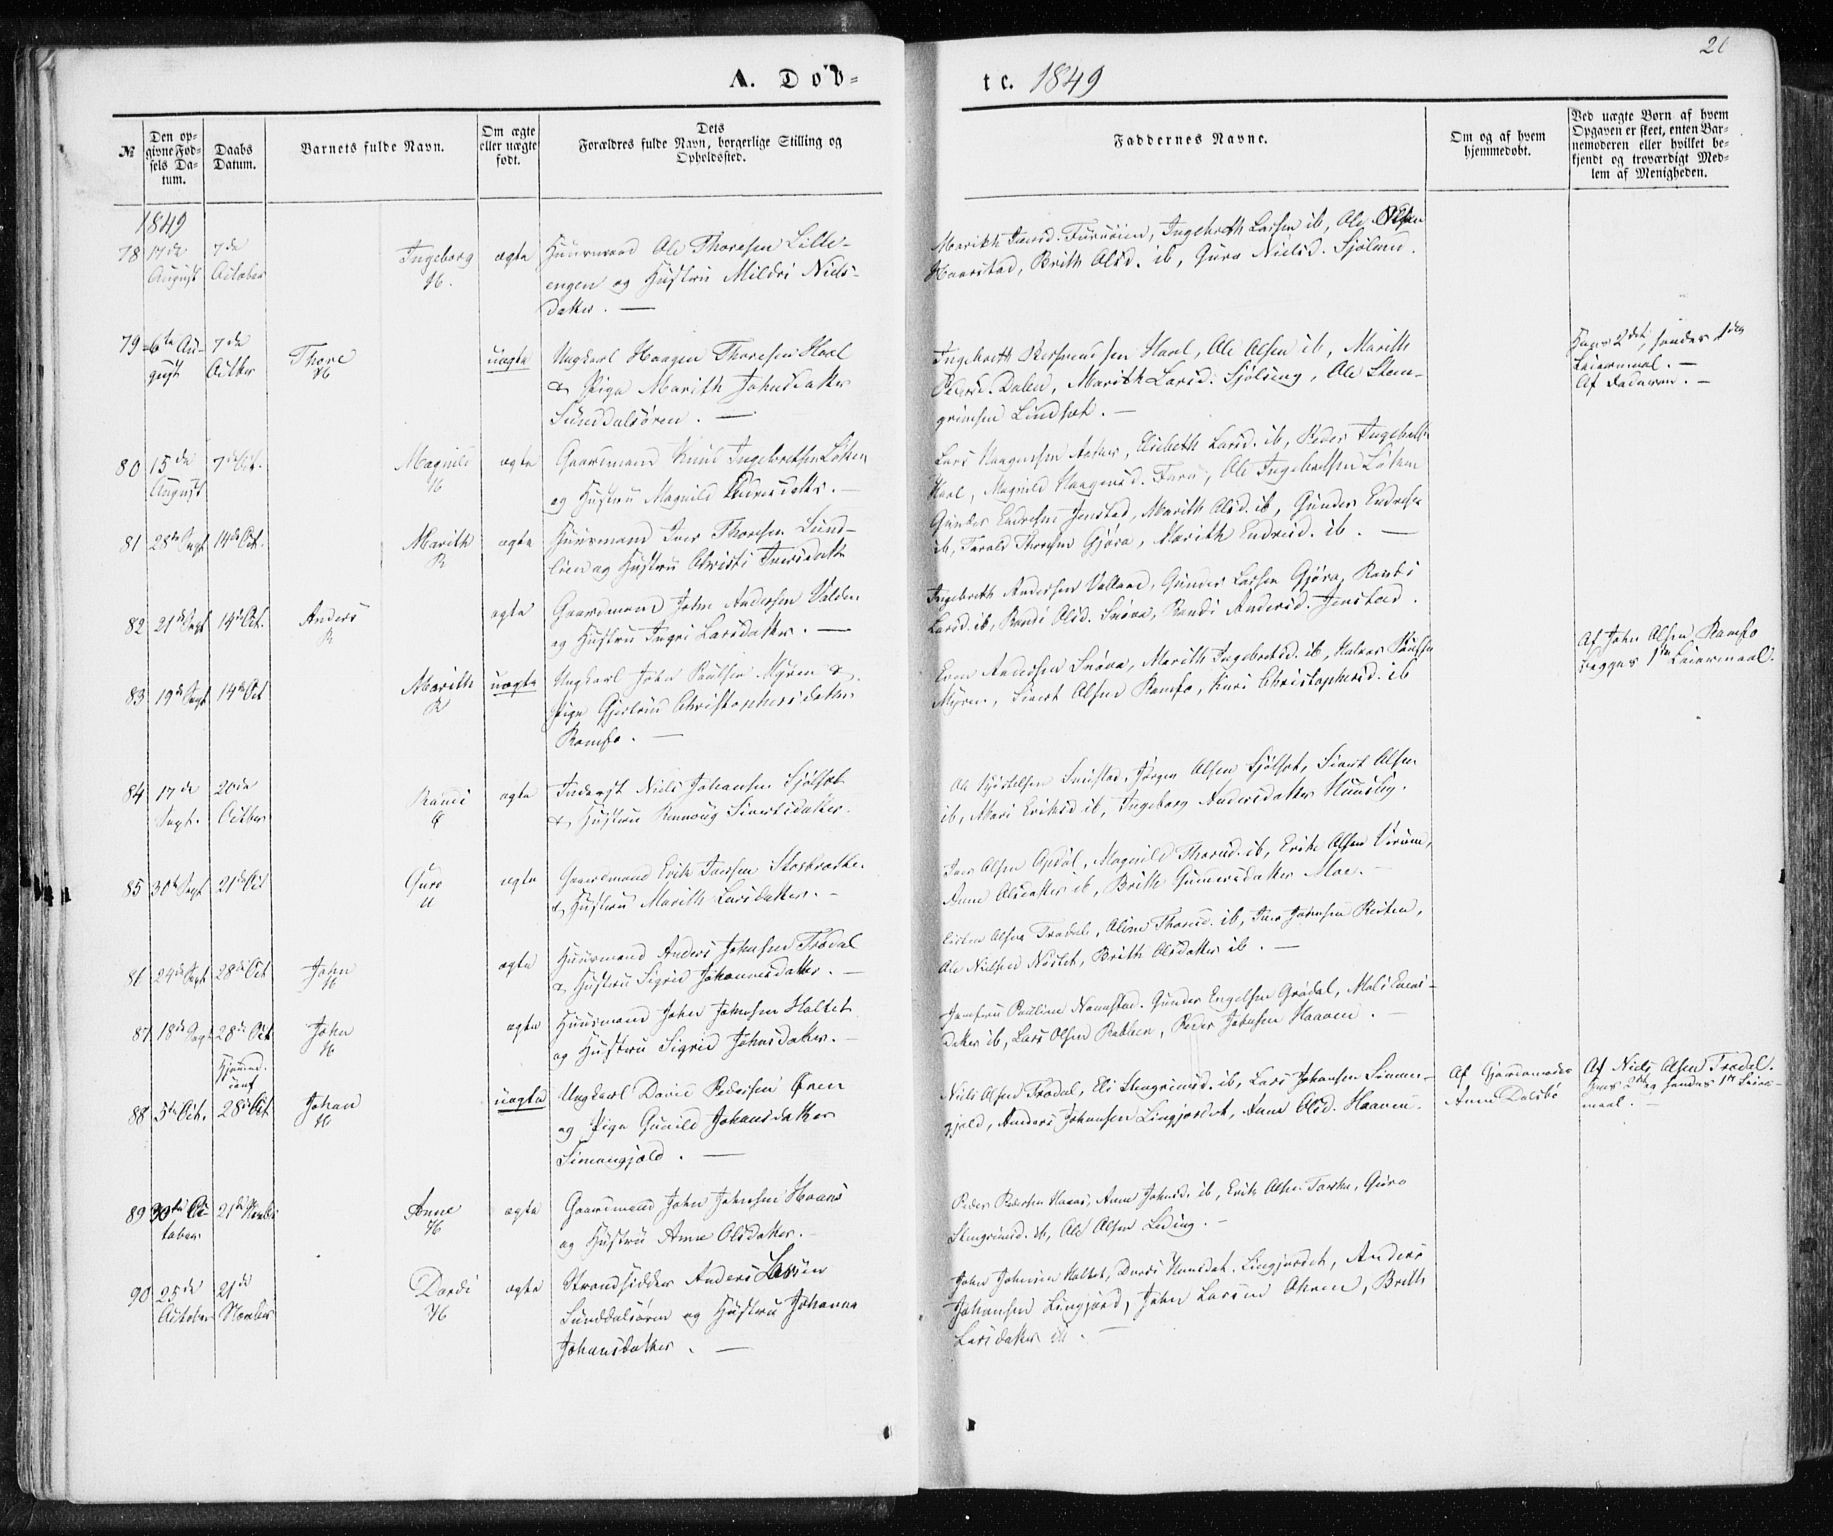 A. Døb-
tc. 1849
№
Den op-
givne Fød-
sels Da-
tum.
Daabs
Datum.
Barnets fulde Navn.
Om ægte
eller uægte
født.
Dets
Forældres fulde Navn, borgerlige Stilling og
Opholdssted.
Faddernes Navne.
Om og af hvem
hjemmedøbt.
Ved uægte Børn af hvem
Opgaven er skeet, enten Bar-
nemoderen eller hvilket be-
kjendt og troværdigt Med-
lem af Menigheden.
1849
78 17de August 7de October Ingeborg H. ægte
Huusmand Ole Thoresen Lille-
engen og Hustru Mildri Niels-
datter. —
Marith Iversd. Furuøien, Ingebreth Larsen ib, Ole Olsen
Haarstad, Brith Olsd. ib, Guro Nielsd. Sjøland.
79 6te August 7de Octber Thore H uægte
Ungkarl Haagen Thoresen Hoel
& Pige Marith Johnsdatter
Sunddalsøren. —
Ingebreth Hoel, Ole Olsen ib, Marith
Pedersd. Dalen, Marith Larsd. Sjølseng, Ole Sten-
grimsen Lindset. —
Hans 2det, hendes 1ste
Leiermaal. —
Af Faderen. —
80 15de August 7de Oct. Magnild H ægte
Gaardmand Knud Ingebretsen Løken
og Hustru Magnild Iversdatter. —
Lars Haagensen, Elisebeth Larsd. ib, Peder
Hoel, Magnild Haagensd. Furu, Ole Ingebretsen Løken
81 28de Aug 14de Oct. Marith R ægte
Huusmand Iver Thoresen Lund-
lien og Hustru Christi Iversdatter
Gunder Endresen Jenstad, Marith Olsd. ib, Gunder Endresen
ib, Tarald Thoresen Gjøra, Marith Endresd. ib. —
82 21de Sept 14de Oct. Anders R ægte
Gaardmand John Andersen
og Hustru Ingri Larsdatter. —
Ingebreth Andersen, Gunder Larsen Gjøra, Randi
Larsd. ib, Randi Olsd. Snøva, Randi Andersd. Jenstad.
83 19de Sept 14de Oct Marith R uægte
Ungkarl John Poulsen Myren &
Pige Gjertrud Christophersdatter
Romfo. —
Even Andersen Snøva, Marith Ingebretsd. ib, Halvor
Myren, Sivert Olsen Romfo, Kari Christophersd. ib
Af John Olsen Romfo
begges 1ste Leiermaal.
84 17de Sept. 20de Octber Randi ægte
Inderst Niels Johansen Sjølset
& Hustru Rannoug Sivertsdatter.
Jørgen Olsen Sjølset, Sivert Olsen
ib, Mari Eriksd. ib, Ingeborg Andersdatter Huusby.
85 30te Sept 21de Oct Guro ægte
Gaardmand Erik Iversen Storbrække
& Hustru Marith Larsdatter. —
Iver Olsen Opdøl, Magnild Thoresd. ib, Erik Olsen
Anne Olsdatter ib, Brith Gunnersdatter Moe. —
86 24de Sept 28de Oct John H ægte
Huusmand Anders Johnsen Trædal
& Hustru Sigrid Johannesdatter. —
Olsen Trædal, Thoresd. ib, Iver Johnsen
Ole Nielsen, Brith Olsdatter ib. —
87 18de Sept 28de Oct John H ægte
Huusmand John Johnsen Holtet
og Hustru Sigrid Johnsdatter. —
Jomfru Pauline, Gunder Engelsen Grødal, Mali
datter ib, Lars Olsen, Peder Johnsen Haaven. —
88 5te Oct. Hjemmedøbt 28de Oct Johan H uægte
Ungkarl David Pedersen Øren
og Pige Gunild Johansdatter
Simengjæld. —
Niels Olsen Trædal, Eli Stengrimsd. ib, Lars Johansen Simen-
gjæld, Anders Johansen Lingjordet, Anne Olsd. Haaven.
Af Gjordemoder
Anne Dalsbø
Af Niels Olsen Trædal.
hans 2det og hendes 1ste Leier-
maal. —
89 30te October 21de Novber Anne H ægte
Gaardmand John Johnsen Hoaas
og Hustru Anne Olsdatter. —
Peder Pedersen Hoaas, Anne Johnsd. ib, Erik Olsen, Guro
Stengrimsd. ib, Ole Olsen Leding. —
90 25de October 21de November Dordi H ægte
Strandsidder Anders Larsen
Sunddalsøren og Hustru Johanna
Johansdatter. —
John Johnsen Holtet, Dordi Lingjordet, Anders
Johansen Lingjord, John Larsen Øhren, Brith
Larsdatter ib. —